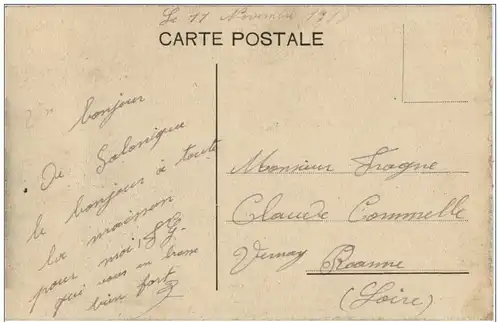 Le 11 Novembre 191
CARTE POSTALE
bonjour
De Salonique
le bonjour a toute
la maison
pour moi
qui vous embrasse
bien fort
Monsieur Fragne
Claude Commelle
Vernay Roanne
(Loire)